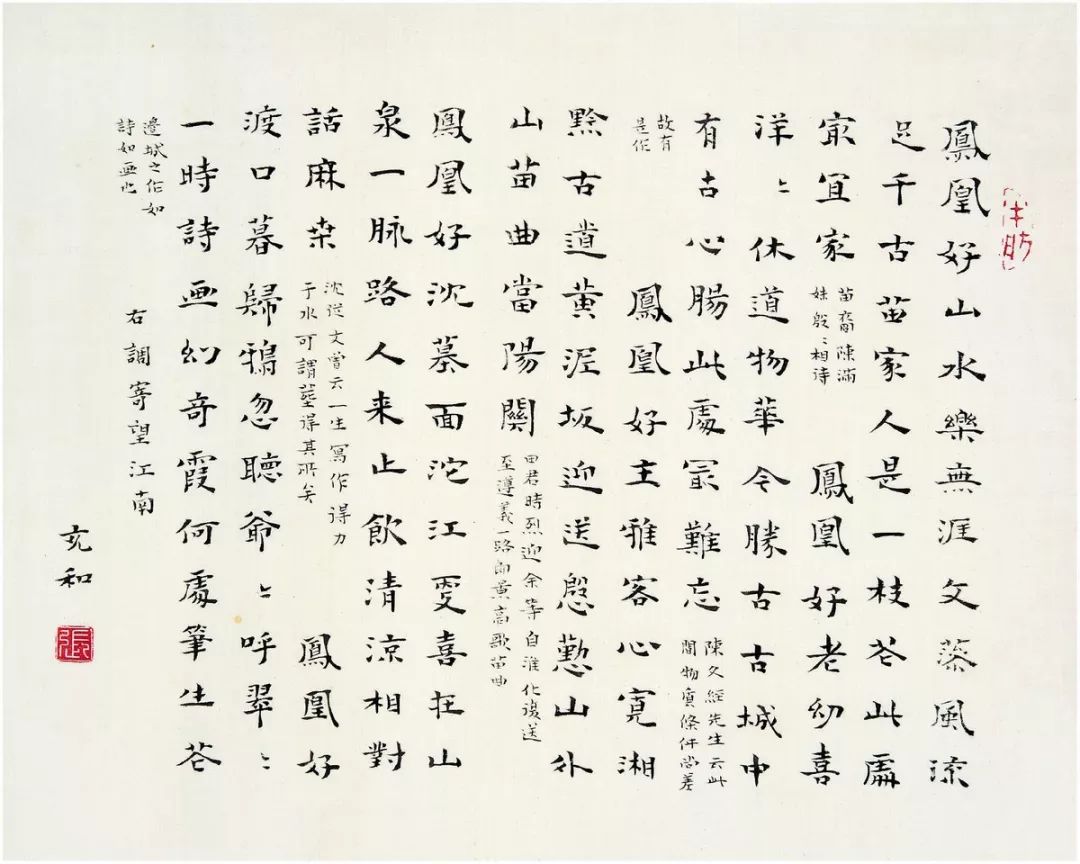 鳳凰好山水樂無涯文藻風流
足千古苗家人是一枝花此處
㝡宜家
苗裔陳滿
妹殷〻相待
鳳凰好老幼喜
洋〻休道物華今勝古古城中
有古心腸此處㝡難忘
陳文經先生云此
間物質條件尚差
故有
是作
鳳凰好主雅客心寬湘
黔古道黄泥坂迎送慇懃山外
山苗曲當陽關
田君時烈迎余等自淮化復送
至遵義一路即景高歌苗曲
鳳凰好沈墓面沱江更喜在山
泉一脉路人来止飲清涼相對
話麻桒
沈從文曾云一生寫作得力
于水可謂塟得其所矣
鳳凰好
渡口暮歸鴉忽聽爺〻呼翠〻
一時詩画幻奇霞何處筆生花
邊城之作如
詩如画也
右調寄望江南
充和
張